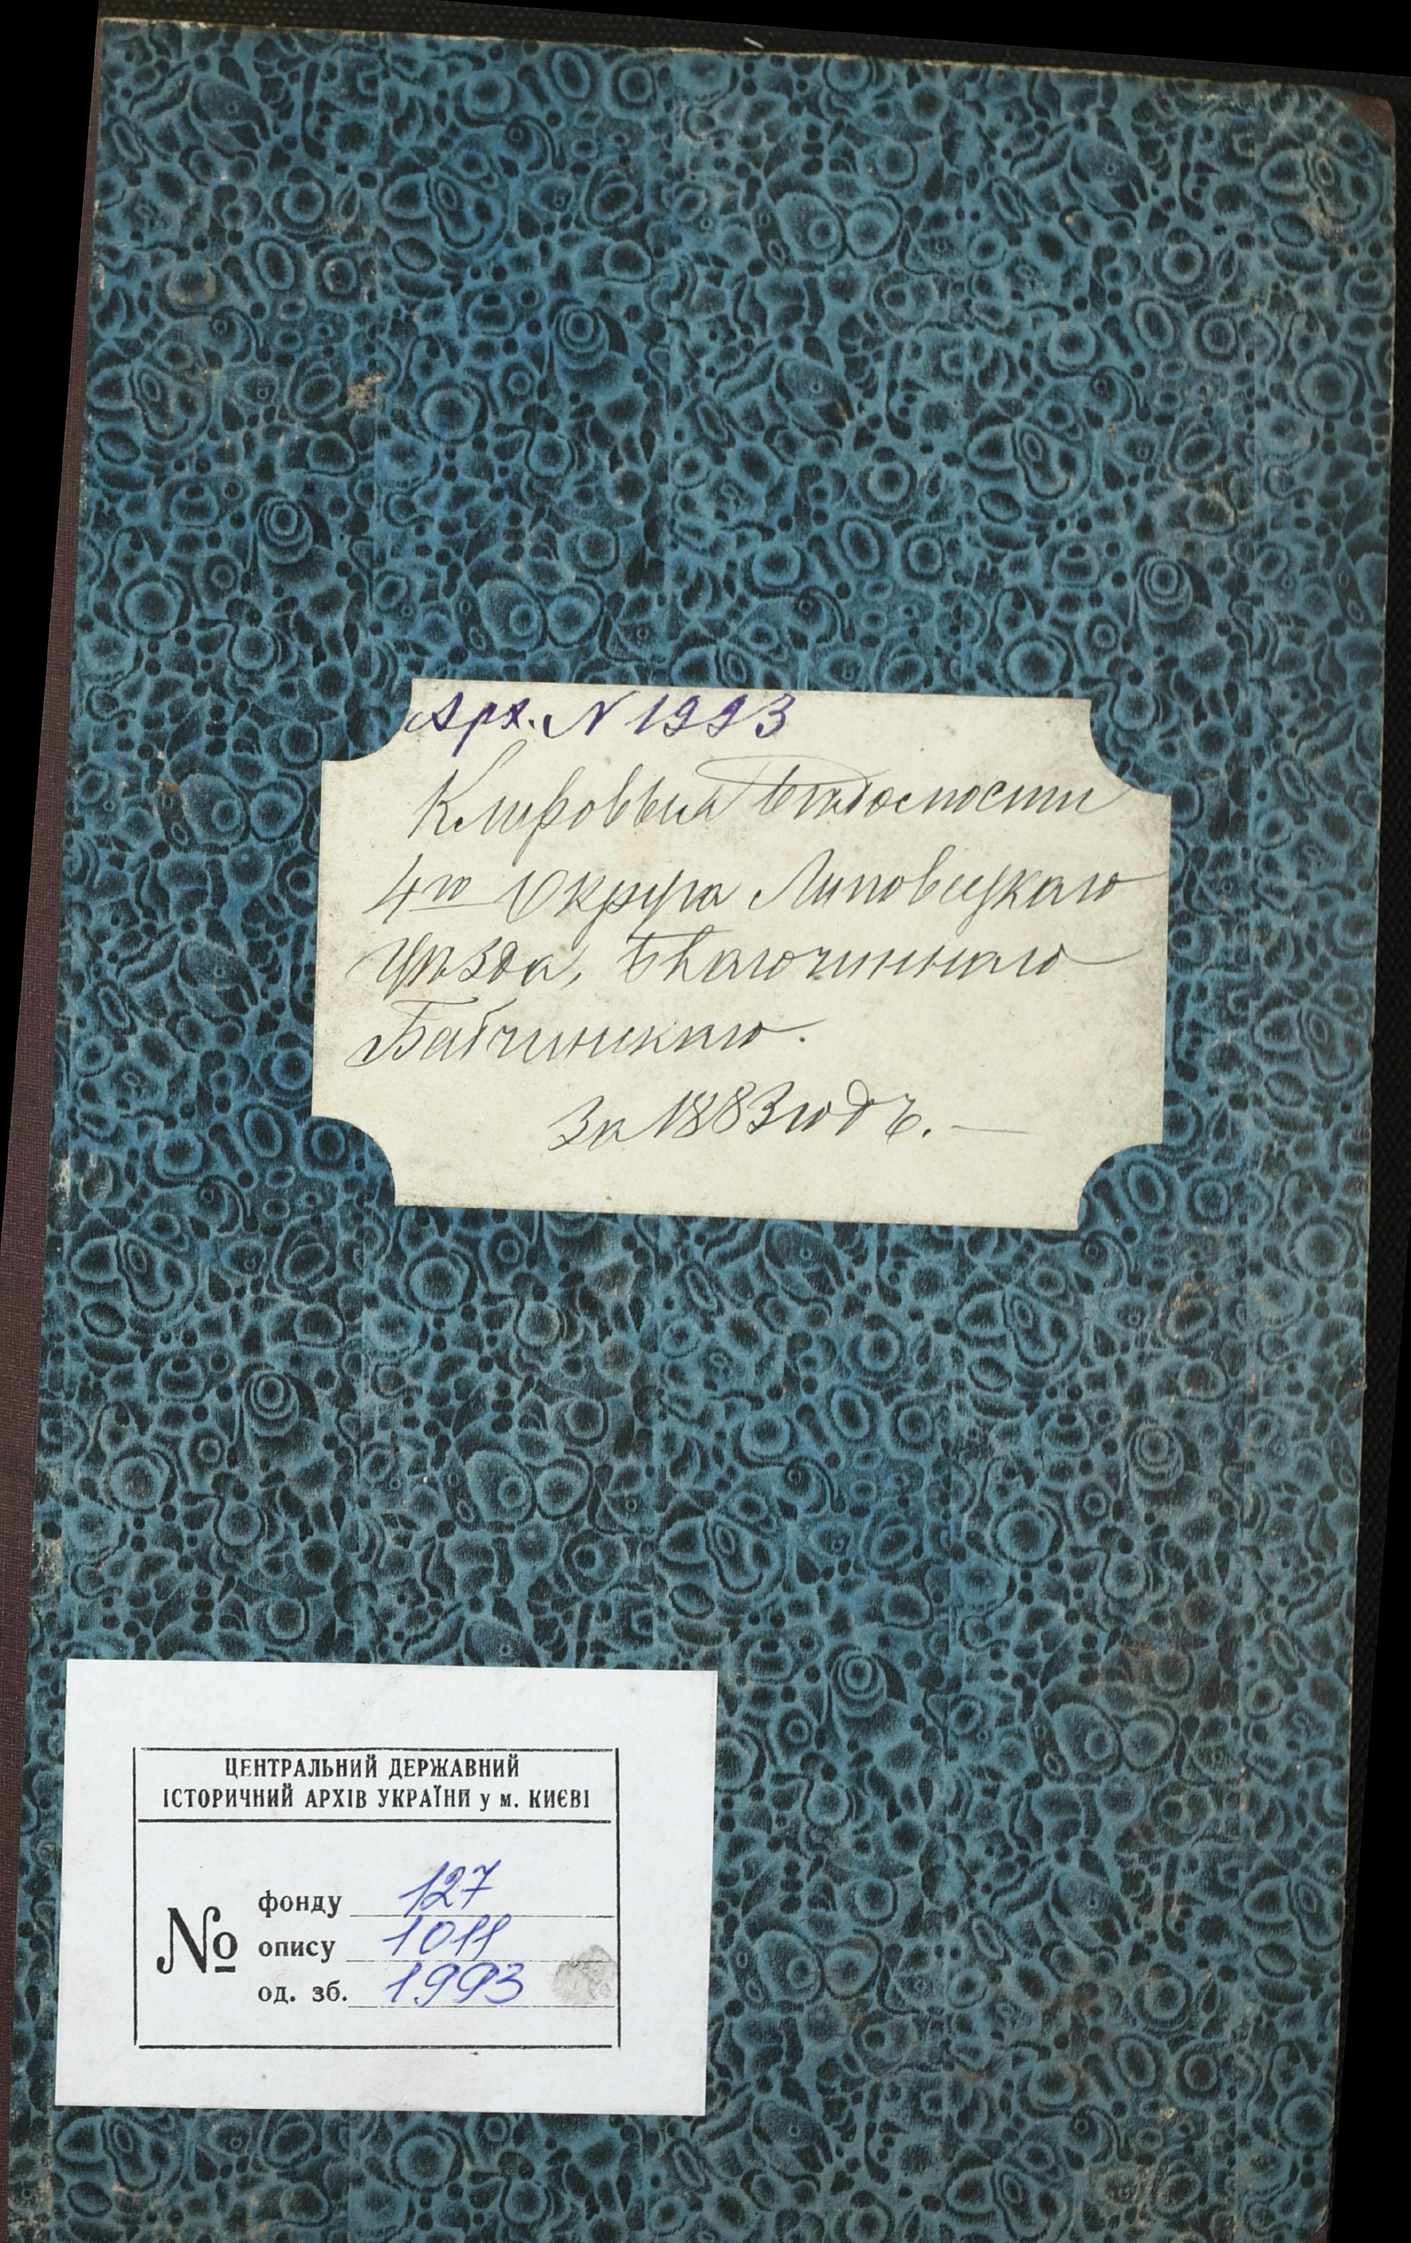 Арх. N 1993
Клировыя Вѣдомости
4го Округа Липовецкаго
Уѣзда, Благочиннаго
Бабчинскаго.
За 1883 годъ. —
ЦЕНТРАЛЬНИЙ ДЕРЖАВНИЙ
ІСТОРИЧНИЙ АРХІВ УКРАЇНИ у м. КИЄВІ
№ фонду 127
опису 1011
од. зб. 1993